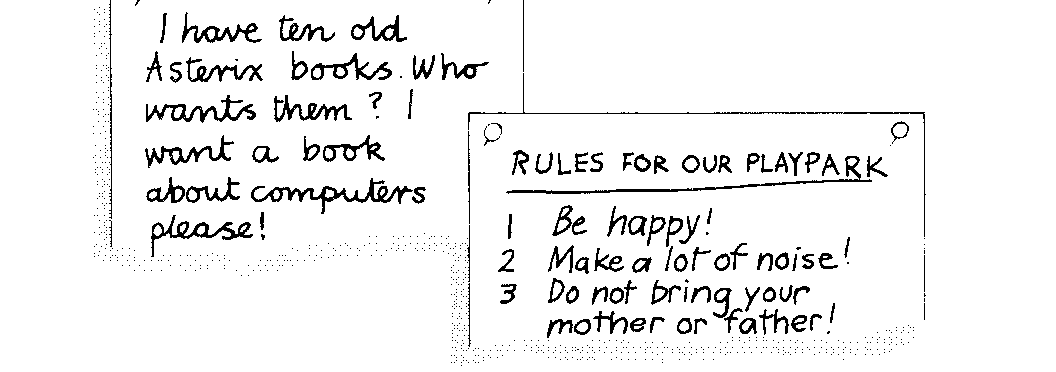 I have ten old
Asterix books. Who
wants them? I
want a book
about computers
please!
RULES FOR OUR PLAYPARK
1 Be happy!
2 Make a lot of noise!
3 Do not bring your
mother or father!